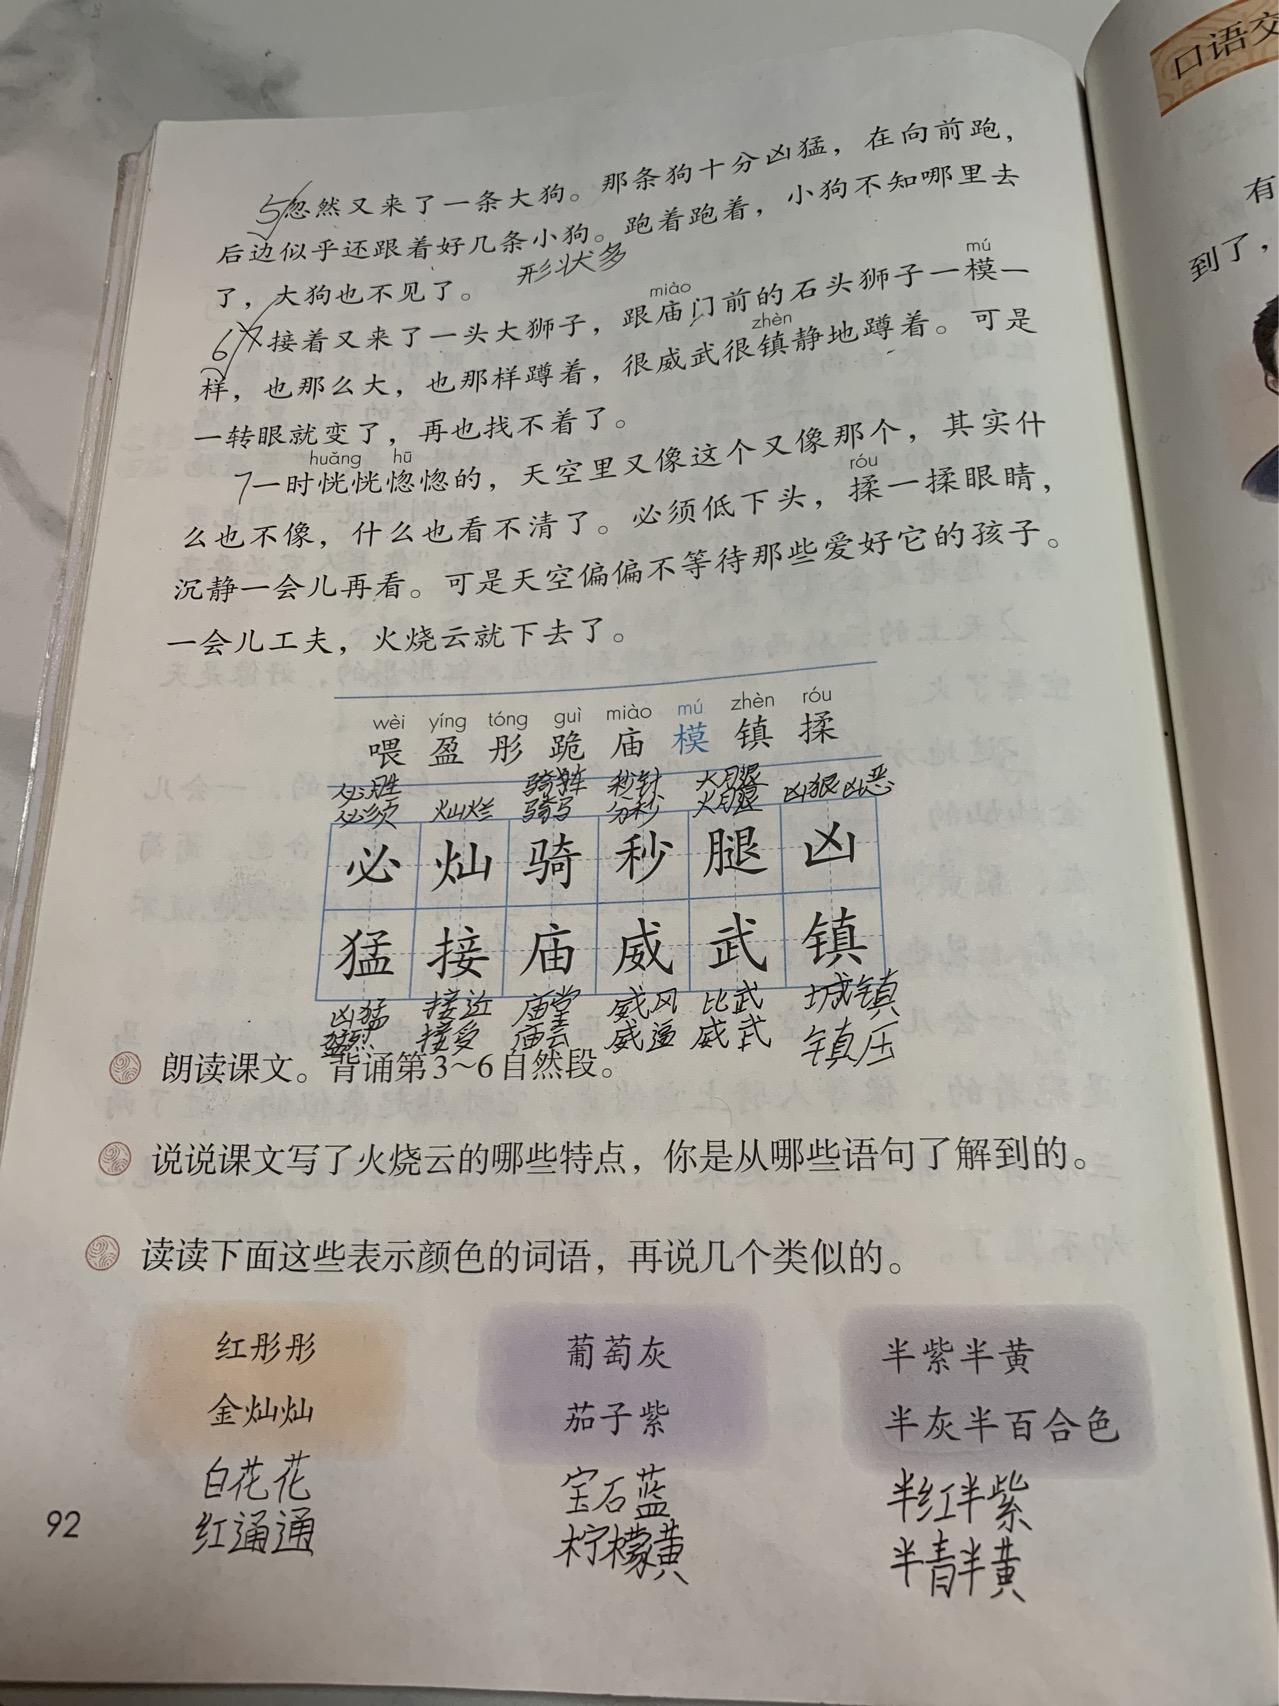 口语交
有
到了，
5忽然又来了一条大狗。那条狗十分凶猛，在向前跑，
后边似乎还跟着好几条小狗。跑着跑着，小狗不知哪里去
了，大狗也不见了。 形状多
mú
miào
6接着又来了一头大狮子，跟庙门前的石头狮子一模一
zhèn
样，也那么大，也那样蹲着，很威武很镇静地蹲着。可是
一转眼就变了，再也找不着了。
huǎng hū
7一时恍恍惚惚的，天空里又像这个又像那个，其实什
róu
么也不像，什么也看不清了。必须低下头，揉一揉眼睛，
沉静一会儿再看。可是天空偏偏不等待那些爱好它的孩子。
一会儿工夫，火烧云就下去了。
wèi yíng tóng guì miào mú zhèn róu
喂 盈 彤 跪 庙 模 镇 揉
必胜 骑车 秒针 大腿
必须 灿烂 骑马 分秒 火腿 凶狠 凶恶
必 灿 骑 秒 腿 凶
猛 接 庙 威 武 镇
凶猛 接近 庙堂 威风 比武 城镇
猛烈 接受 庙会 威逼 威武 镇压
朗读课文。背诵第3~6自然段。
说说课文写了火烧云的哪些特点，你是从哪些语句了解到的。
读读下面这些表示颜色的词语，再说几个类似的。
红彤彤 葡萄灰 半紫半黄
金灿灿 茄子紫 半灰半百合色
白花花 宝石蓝 半红半紫
红通通 柠檬黄 半青半黄
92